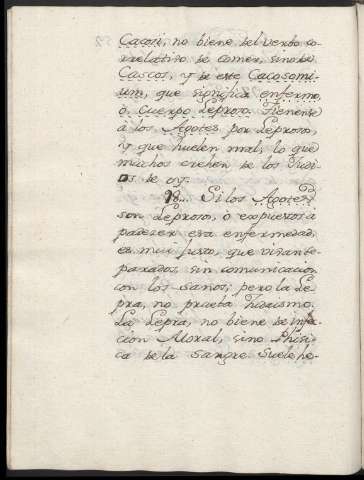 Cacosi, no biene del verbo co-
rrelativo de comer, sino de
Cascos, y de este Cacosomi-
um, que significa enfermo,
ó Cuerpo leproso. Tienente
á los Agotes por leprosos,
y que huelen mal, lo que
muchos crehen de los Judi-
os de oy.
18... Si los Agotes
son leprosos, ó expuestos á
padezer esa enfermedad,
es mui justo, que vivan se-
parados, sin comunicacion
con los sanos; pero la Le-
pra, no prueba Judaismo.
La Lepra, no biene de infec-
cion Moral, sino Phisi-
ca de la sangre. Suele he-